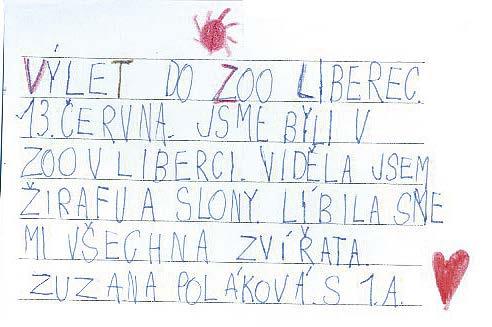 VÝLET DO ZOO LIBEREC.
13. ČERVNA. JSME BYLI V
ZOO V LIBERCI. VIDĚLA JSEM
ŽIRAFU A SLONY. LÍBILA SME
MI VŠECHNA ZVÍŘATA.
ZUZANA POLÁKOVÁ. S 1.A.